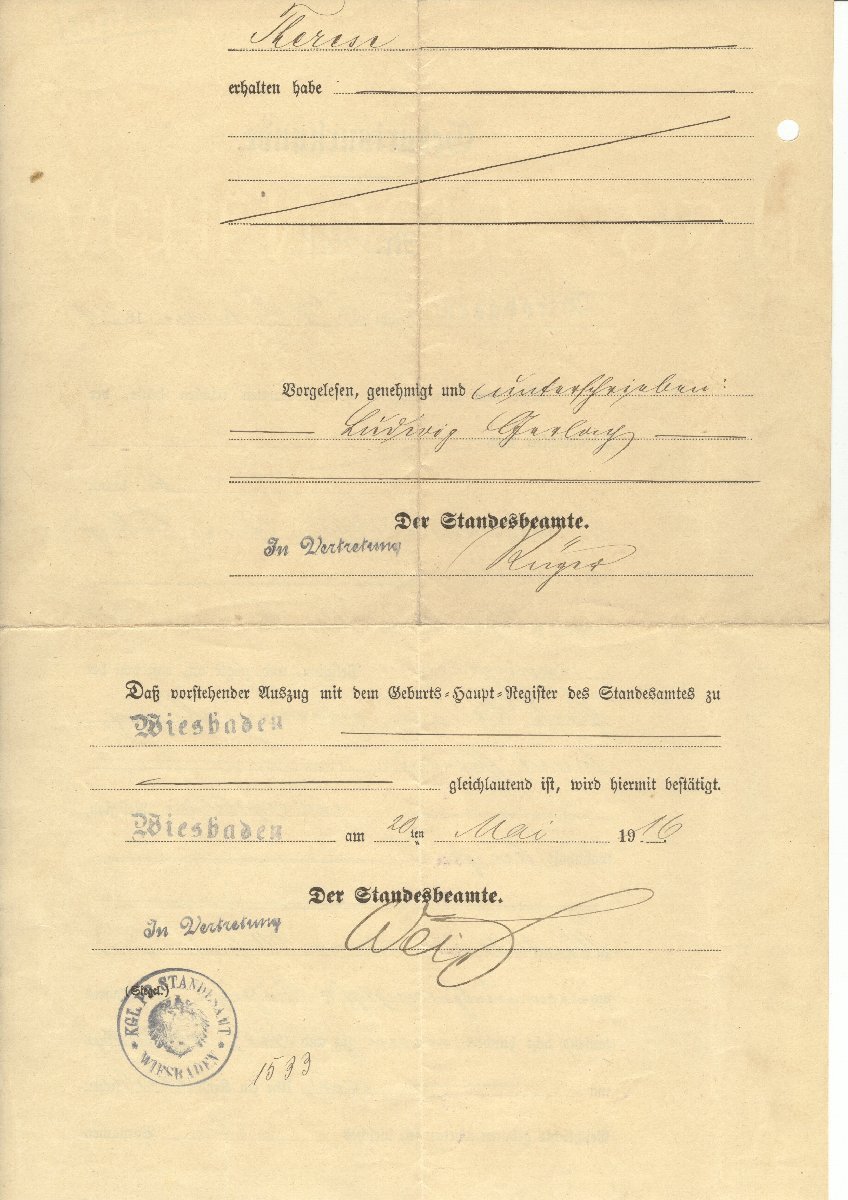 Therese
erhalten habe
Vorgelesen, genehmigt und unterschrieben:
Ludwig Gerlach
Der Standesbeamte.
In Vertretung
Rüger
Daß vorstehender Auszug mit dem Geburts-Haupt-Register des Standesamtes zu
Wiesbaden
gleichlautend ist, wird hiermit bestätigt.
Wiesbaden am 20ten Mai 1916
Der Standesbeamte.
In Vertretung
(Siegel.)
KGL. PR. STANDESAMT
* WIESBADEN *
1533